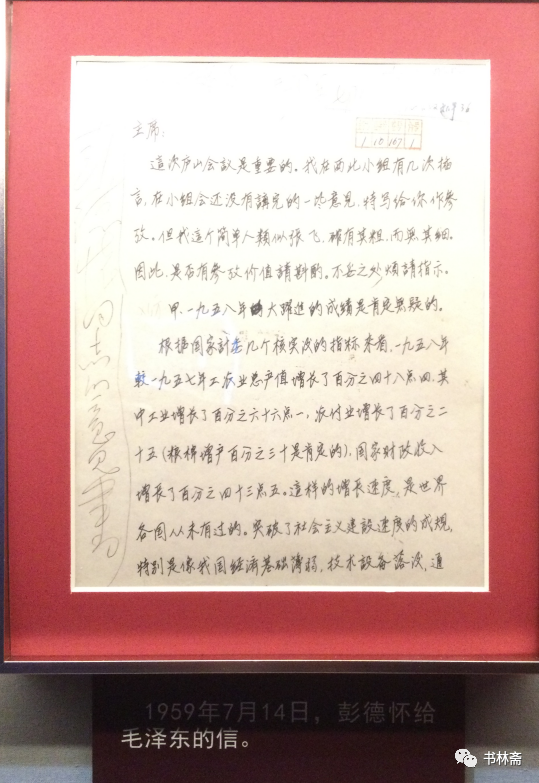 主席:
這次庐山会議是重要的。我在西北小组有几次插
言,在小组会还没有講完的一些意见,特写给你作参
攷。但我这个简单人類似张飞,確有其粗,而無其细。
因此,是否有参攷价值請斟酌。不妥之处,煩請指示。
甲、一九五八年大躍進的成绩是肯定無疑的。
根據国家計委几个核实后的指标来看,一九五八年
較一九五七年工农业总产值增长了百分之四十八点四,其
中工业增长了百分之六十六点一,农付业增长了百分之二
十五(粮棉增产百分之三十是肯定的),国家财政收入
增长了百分之四十三点五。這样的增长速度,是世界
各国从未有过的。突破了社会主义建設速度的成規,
特别是像我国经濟基础薄弱,技术設备落後,通
同志的意见书
1 10 167 1
1959年7月14日,彭德怀给
毛泽东的信。
书林斋